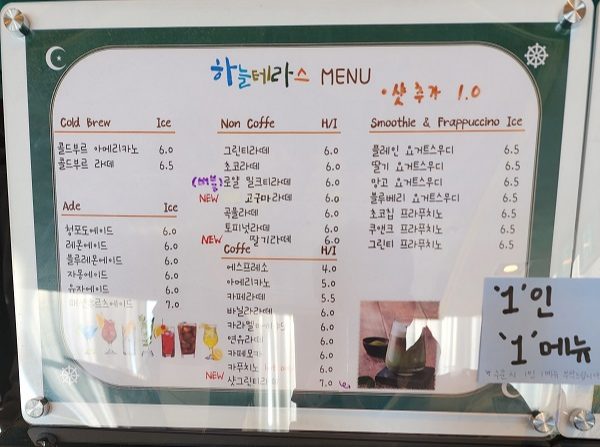 하늘테라스 MENU
·샷 추가 1.0
Cold Brew Ice
콜드부르 아메리카노 6.0
콜드부르 라떼 6.5
Ade Ice
청포도에이드 6.0
레몬에이드 6.0
블루레몬에이드 6.0
자몽에이드 6.0
유자에이드 6.0
7.0
Non Coffe H/I
그린티라떼 6.0
초코라떼 6.0
(버블) 로얄 밀크티라떼 6.0
NEW 고구마라떼 6.0
곡물라떼 6.0
토피넛라떼 6.0
NEW 딸기라떼 6.0
Coffe H/I
에스프레소 4.0
아메리카노 5.0
카페라떼 5.5
바닐라라떼 6.0
6.0
연유라떼 6.0
카페모카 6.0
카푸치노 6.0
NEW 샷그린티라떼 7.0
Smoothie & Frappuccino Ice
플레인 요거트스무디 6.5
딸기 요거트스무디 6.5
망고 요거트스무디 6.5
블루베리 요거트스무디 6.5
초코칩 프라푸치노 6.5
쿠앤크 프라푸치노 6.5
그린티 프라푸치노 6.5
'1'인
'1'메뉴